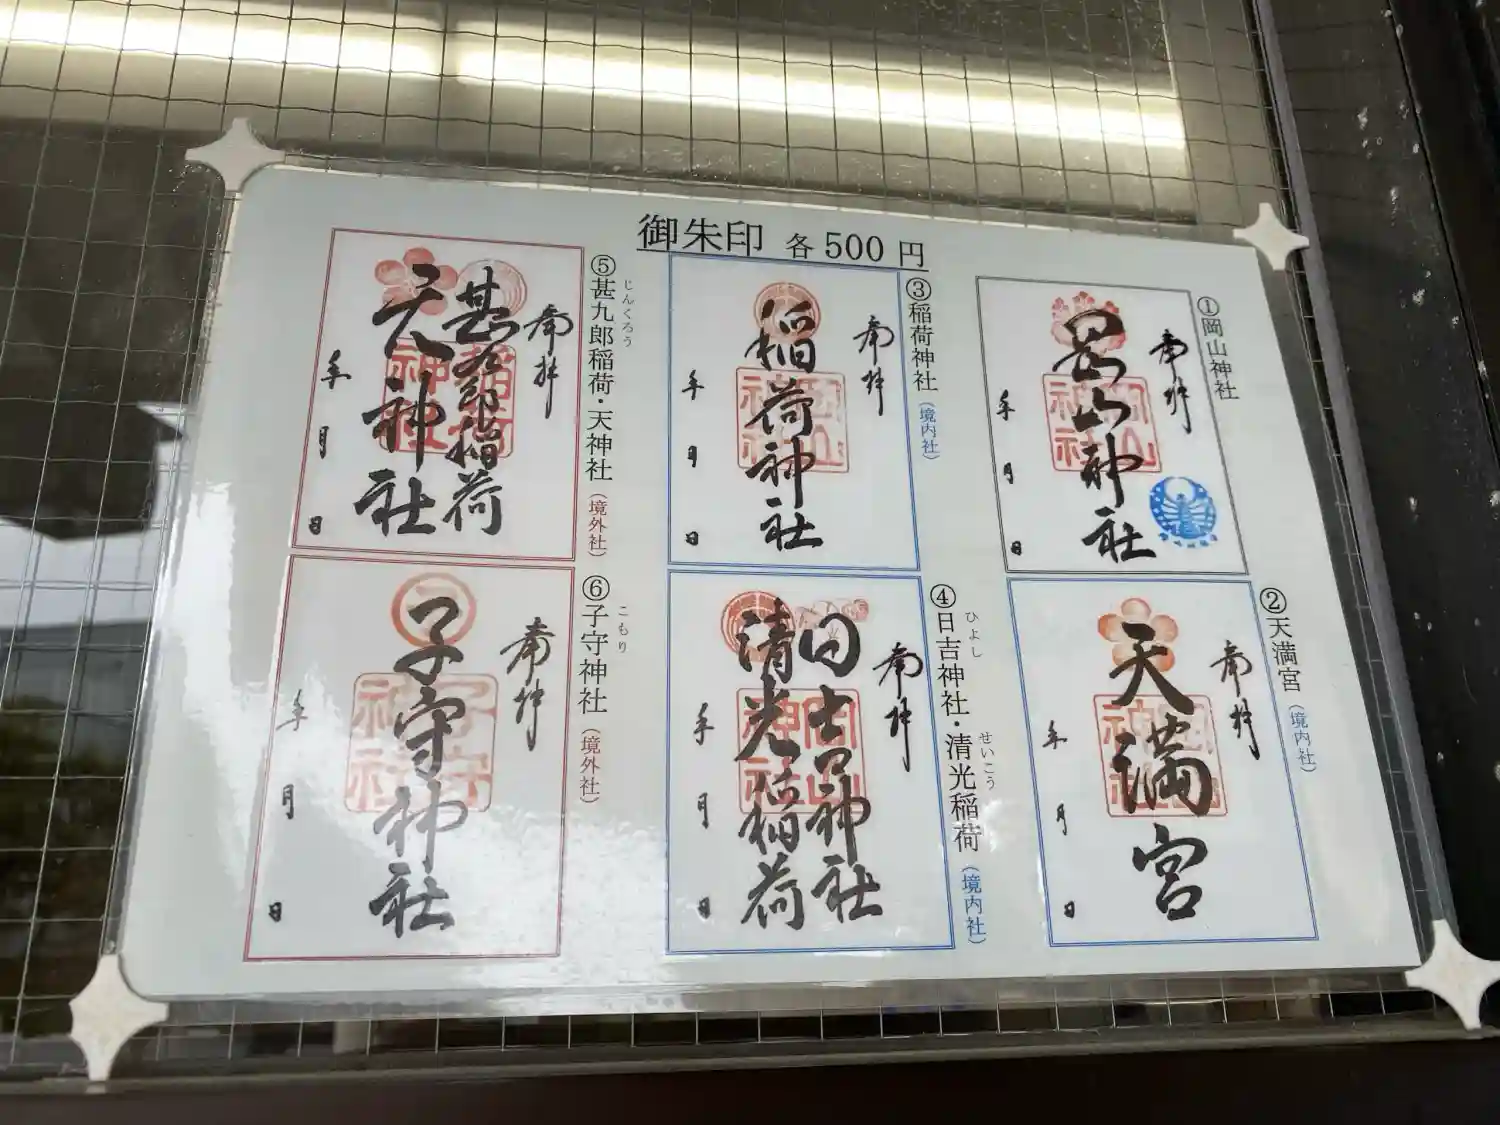 御朱印 各500円
①岡山神社
奉拝
岡山神社
年 月 日
②天満宮（境内社）
奉拝
天満宮
年 月 日
③稲荷神社（境内社）
奉拝
稲荷神社
年 月 日
④日吉神社・清光稲荷（境内社）
ひよし
せいこう
奉拝
日吉神社
清光稲荷
年 月 日
⑤甚九郎稲荷・天神社（境外社）
じんくろう
奉拝
甚九郎稲荷
天神社
年 月 日
⑥子守神社（境外社）
こもり
奉拝
子守神社
年 月 日